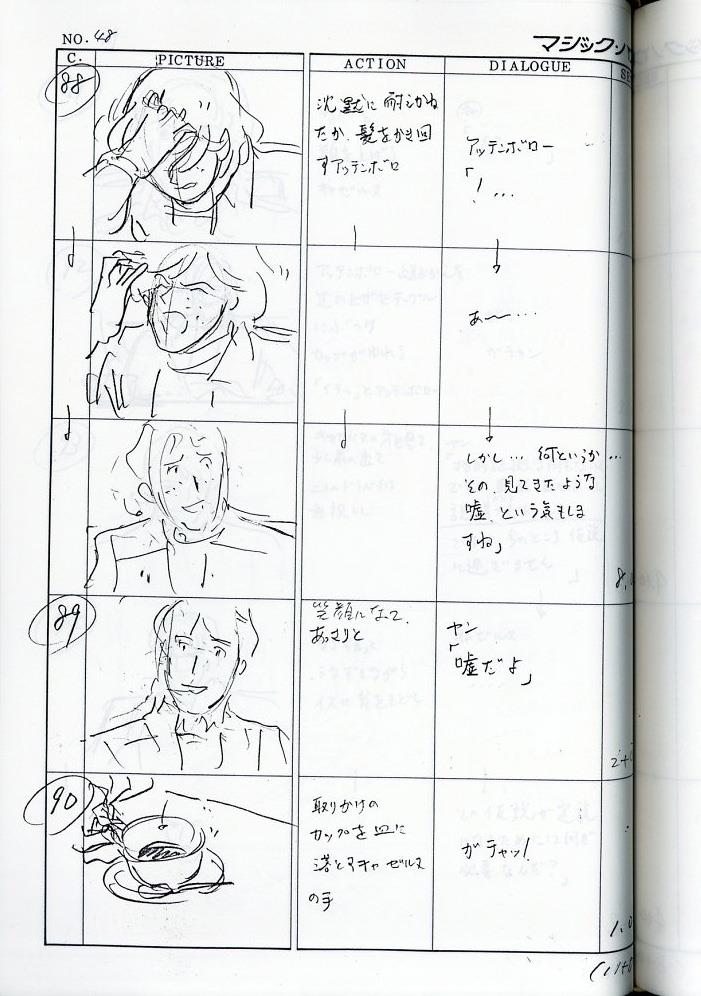 NO. 48
マジック・バ
C.
PICTURE
ACTION
DIALOGUE
SE
88
沈黙に耐えかね
たか、髪をかき回
すアッテンボロー
アッテンボロー
「!...
あ〜...
しかし... 何というか...
その、見てきたような
嘘、という気もしま
すね」
8.
89
笑顔になって、
あっさりと
ヤン
「嘘だよ」
2+
90
取りかけの
カップを皿に
落とすキャゼルヌ
の手
ガチャッ!
1.0
(11+8